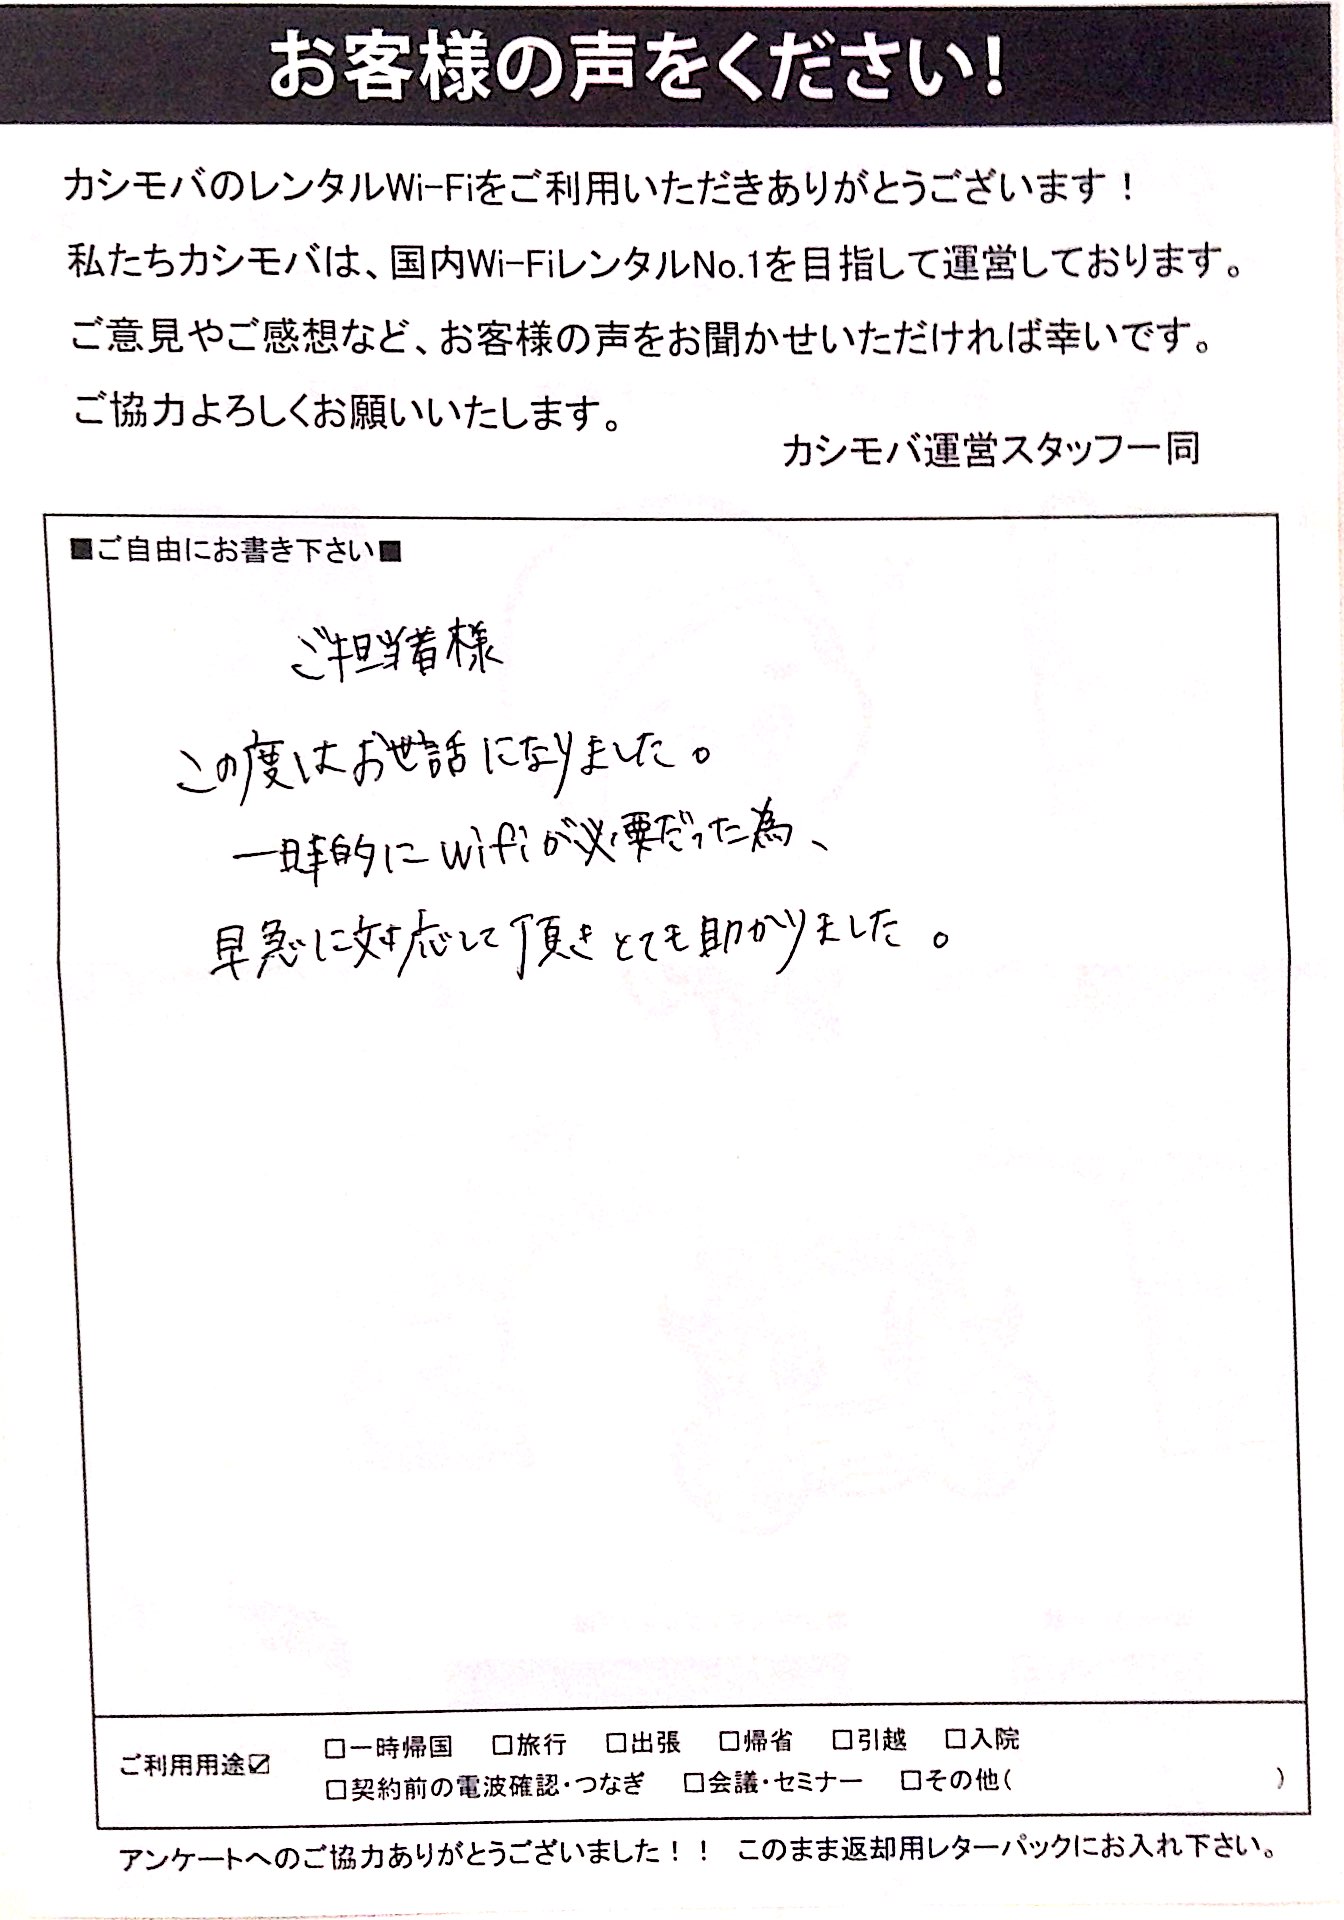 お客様の声をください!
カシモバのレンタルWi-Fiをご利用いただきありがとうございます！
私たちカシモバは、国内Wi-FiレンタルNo.1を目指して運営しております。
ご意見やご感想など、お客様の声をお聞かせいただければ幸いです。
ご協力よろしくお願いいたします。
カシモバ運営スタッフ一同
■ご自由にお書き下さい■
ご担当者様
この度はお世話になりました。
一時的にwifiが必要だった為、
早急に対応して頂きとても助かりました。
ご利用用途☑ □一時帰国 □旅行 □出張 □帰省 □引越 □入院
□契約前の電波確認・つなぎ □会議・セミナー □その他( )
アンケートへのご協力ありがとうございました！！ このまま返却用レターパックにお入れ下さい。